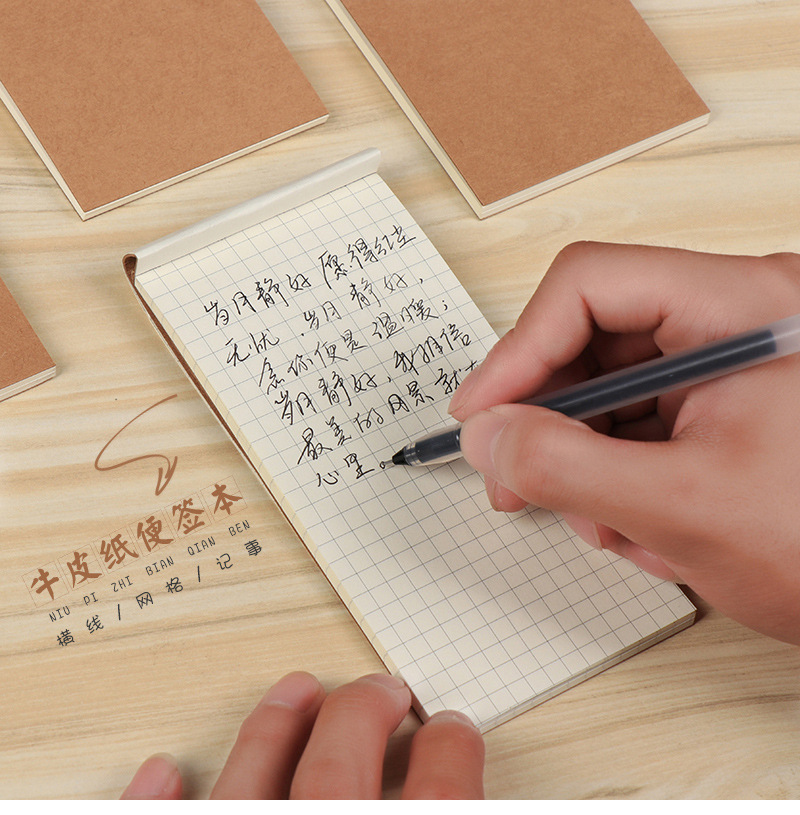 岁月静好 愿得红尘
无忧.岁月静好,
念你便是温暖;
岁月静好,我相信
最美的风景就在
心里。
牛皮纸便签本
NIU PI ZHI BIAN QIAN BEN
横线/网格/记事